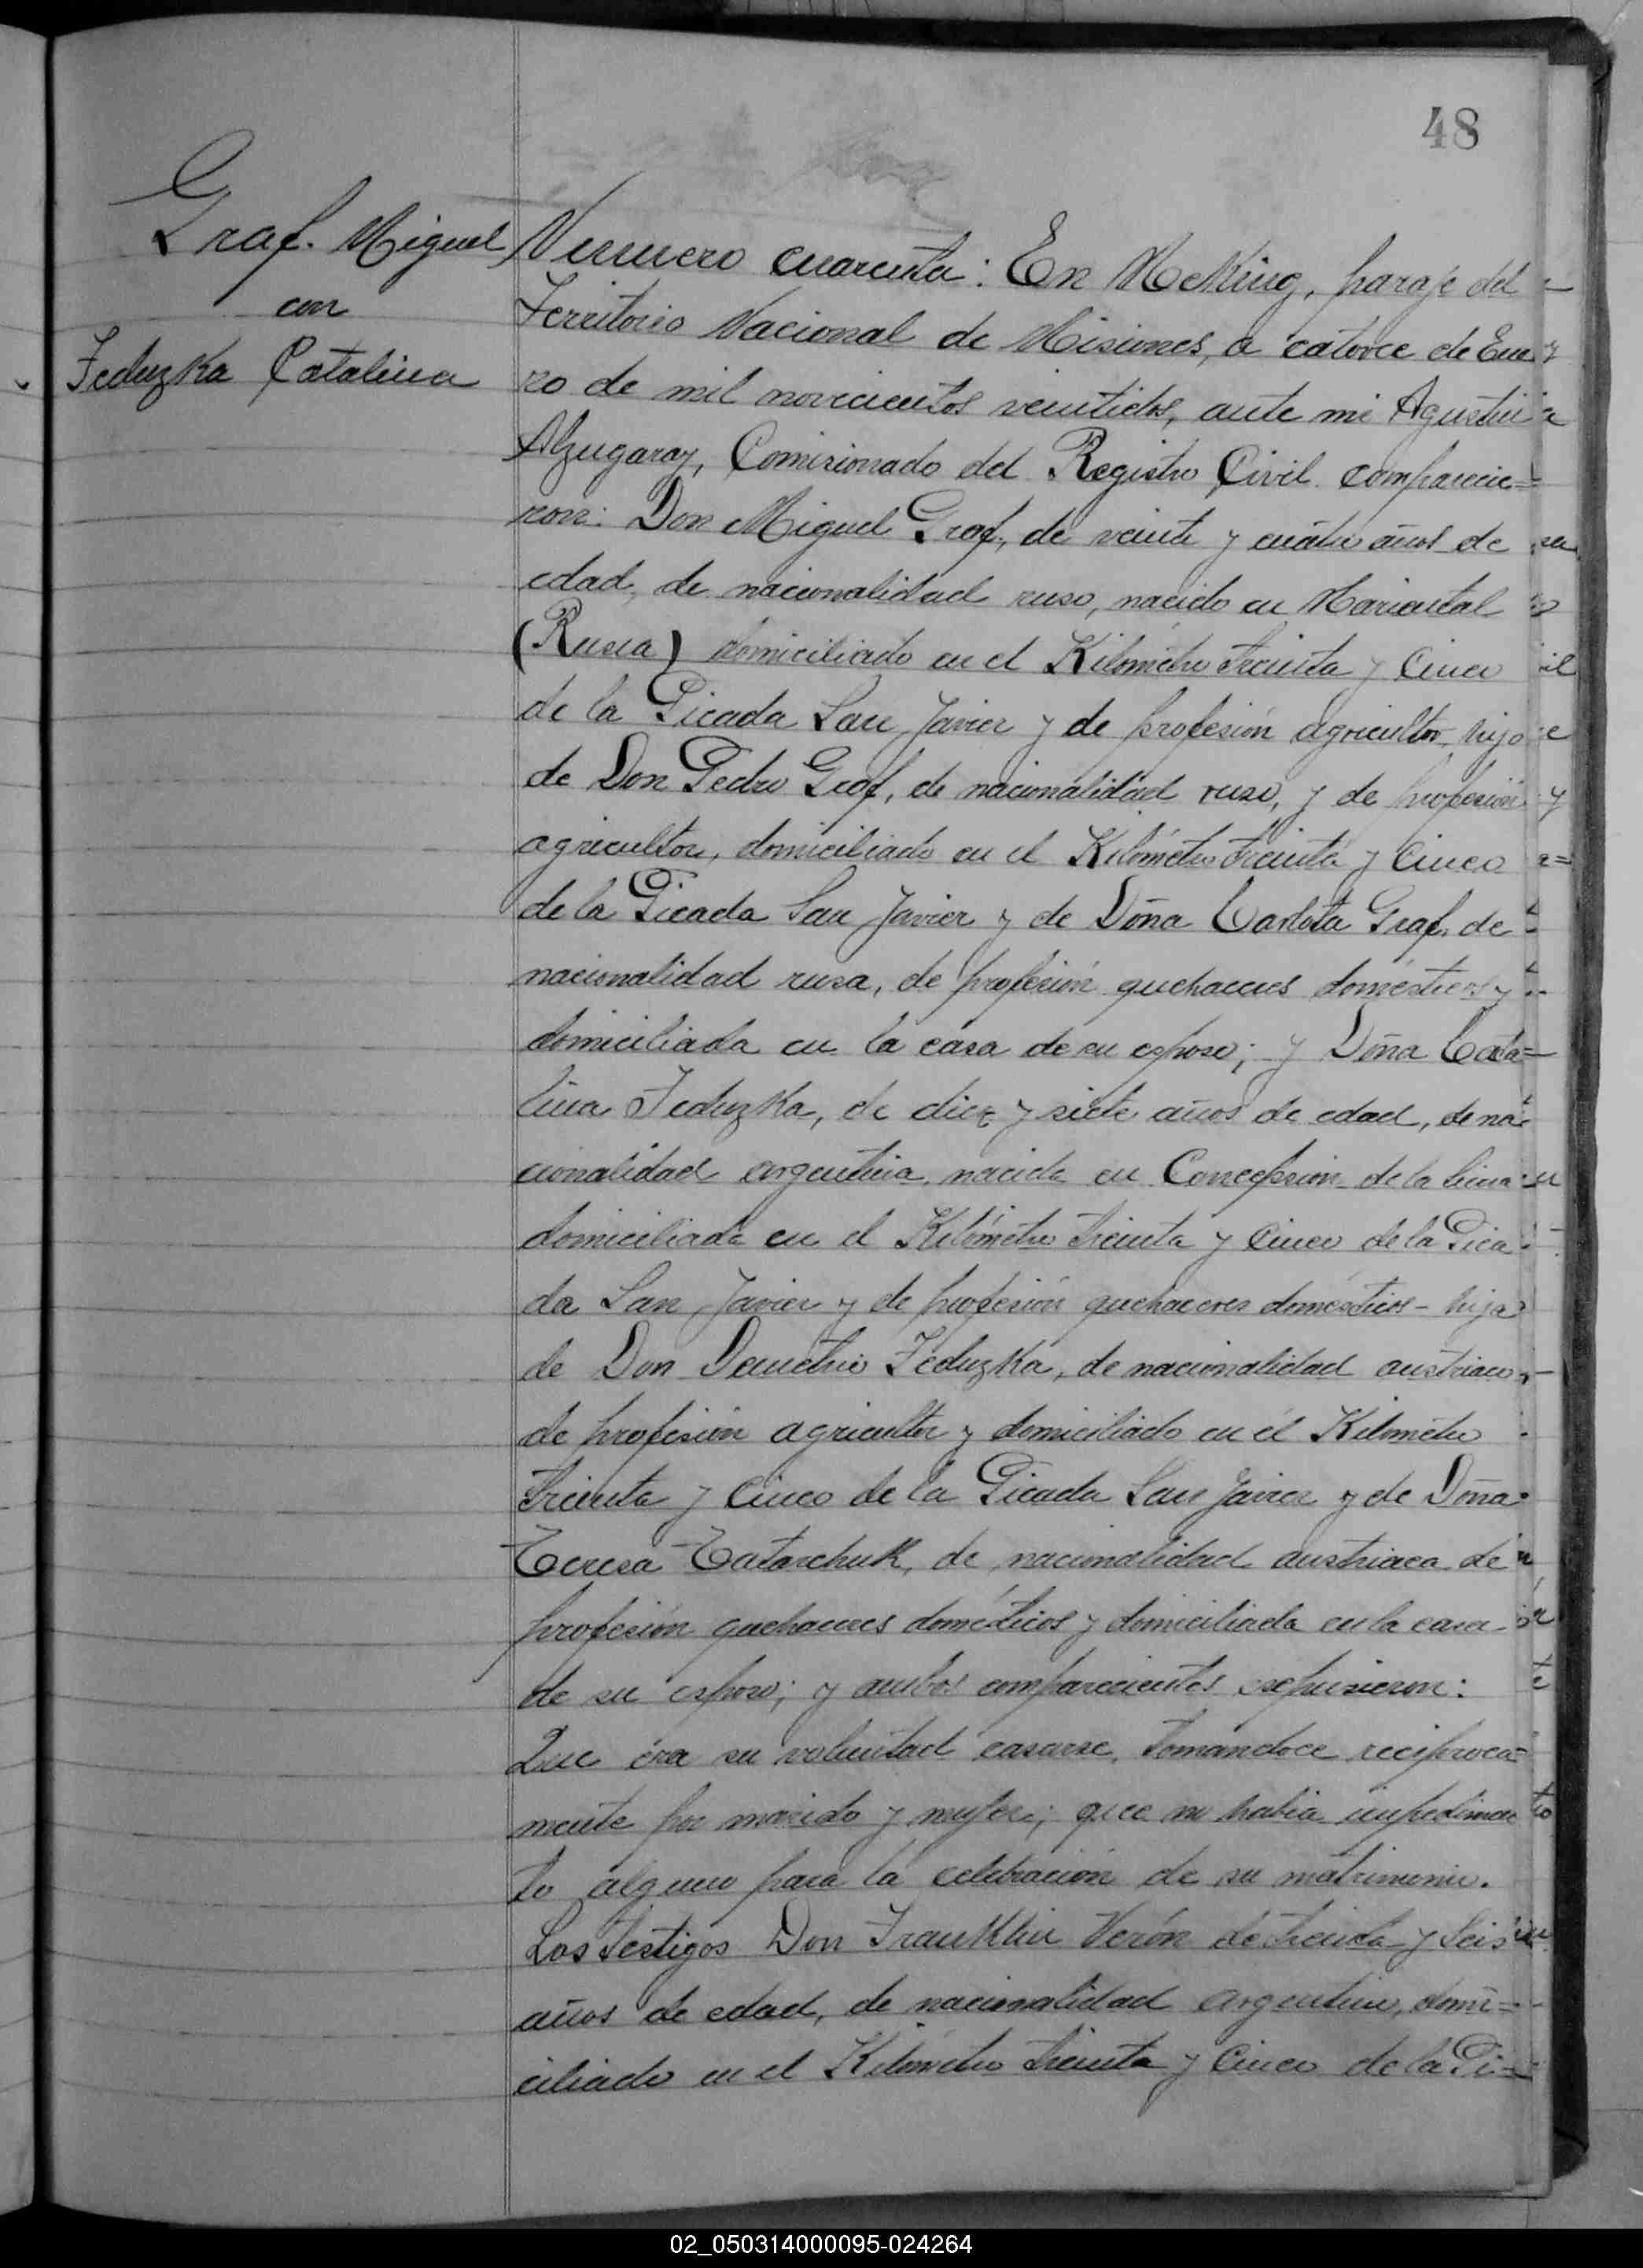 48
Graf. Miguel
con
Feduzka Catalina
Numero cuarenta: En MeKing, paraje del
Territorio Nacional de Misiones, a catorce de Ene
ro de mil novecientos veintidos, ante mi Agustin
Alzugaray, Comisionado del Registro Civil comparecie=
ron: Don Miguel Graf, de veinte y cuatro años de
edad, de nacionalidad ruso, nacido en Mariental
(Rusia) domiciliado en el Kilómetro treinta y Cinco
de la Picada San Javier y de profesión agricultor, hijo
de Don Pedro Graf, de nacionalidad ruso, y de profesión
agricultor, domiciliado en el Kilómetro treinta y Cinco
de la Picada San Javier y de Doña Carlota Graf, de
nacionalidad rusa, de profesión quehaceres domésticos y
domiciliada en la casa de su esposo; y Doña Cata=
lina Feduzka, de diez y siete años de edad, de na
cionalidad argentina, nacida en Concepsion de la Sierra
domiciliada en el Kilómetro treinta y Cinco de la Pica
da San Javier y de profesión quehaceres domésticos - hija
de Don Demetrio Feduzka, de nacionalidad austriaco,
de profesión agricultor y domiciliado en el Kilómetro
treinta y Cinco de la Picada San Javier y de Doña
Teresa Tatarchuk, de nacionalidad austriaca de
profesión quehaceres domésticos y domiciliada en la casa
de su esposo; y ambos comparecientes expusieron:
Que era su voluntad casarse, tomandoce reciproca=
mente por marido y mujer; que no habia impedimen
to alguno para la celebración de su matrimonio.
Los testigos Don Franklin Verón de treinta y seis
años de edad, de nacionalidad argentino, domi=
ciliado en el Kilómetro treinta y Cinco de la Pi=
02_050314000095-024264